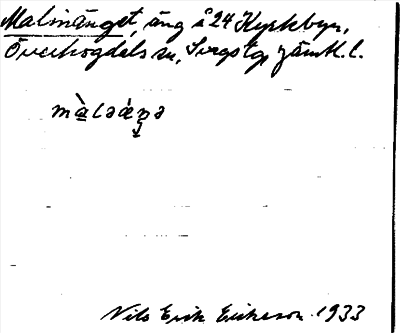 Malinänget, äng å 24 Kyrkbyn,
Överhogdals sn, Svegs tg Jämtl. l.
Nils Erik Eriksson 1933